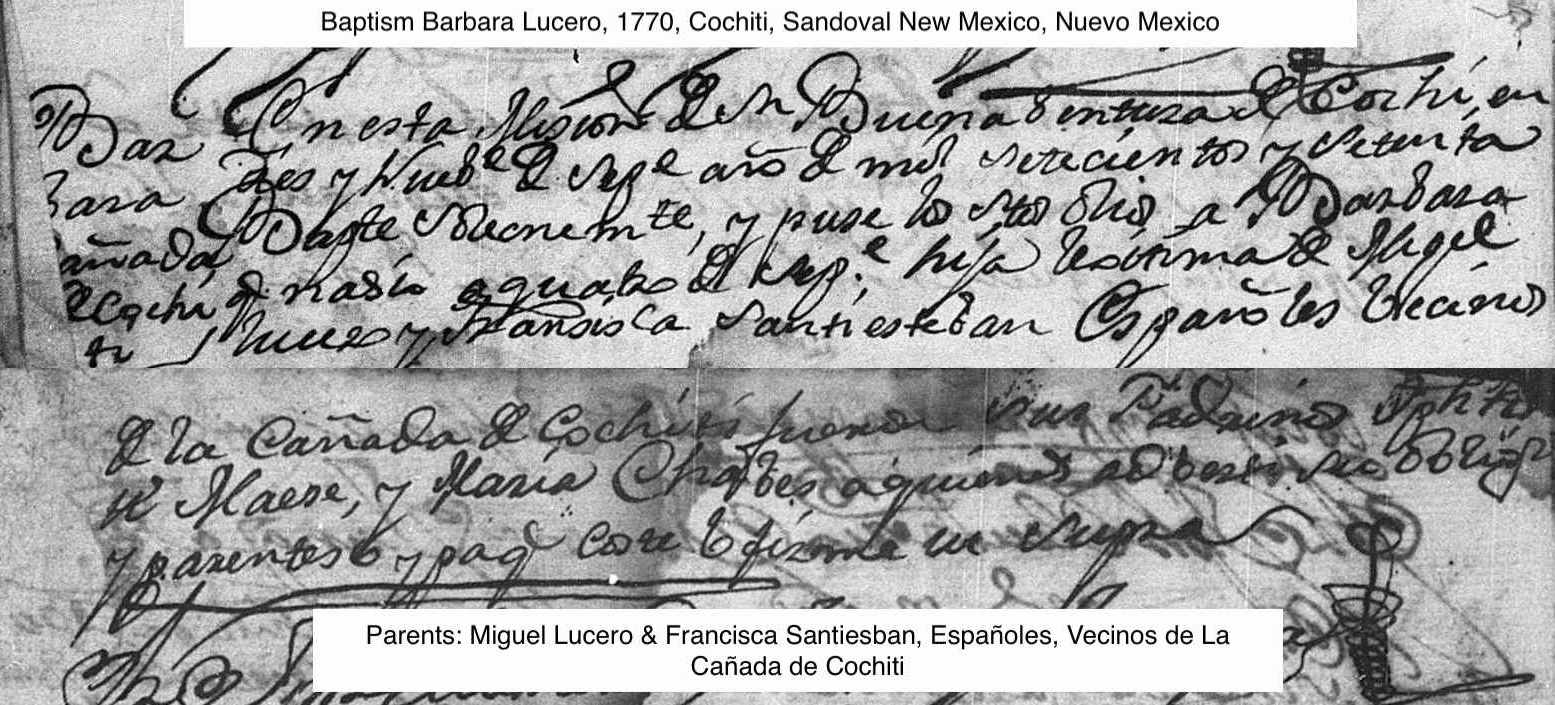 Baptism Barbara Lucero, 1770, Cochiti, Sandoval New Mexico, Nuevo Mexico
Bar En esta Mision de Sn Buena bentura de Cochiti, en
bara Dies y Nuebe de Sepe año de mil setecientos y setenta
Cañada Bapte solemnemte, y puse los stos Olios a Barbara
de Cochi q nasio a quatro de Sepe hija lexitima de Migel
ti Lusero y Fransisca Santiesteban Españoles becinos
de la Cañada de Cochiti fueron sus Padrinos
Maese, y Maria Chabes a quienes adberti su oblign
y parentesco y paq conste lo firme ut supra
Parents: Miguel Lucero & Francisca Santiesban, Españoles, Vecinos de La
Cañada de Cochiti